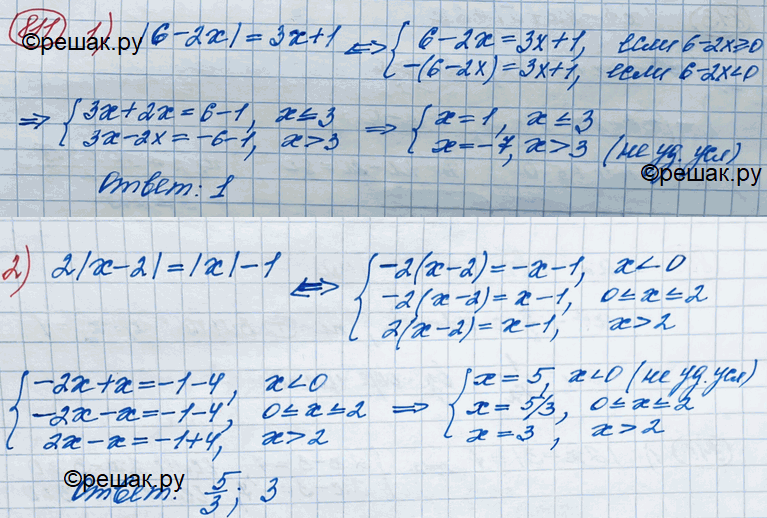 811 1) |6-2x| = 3x+1 <=> { 6-2x = 3x+1, если 6-2x≥0
-(6-2x) = 3x+1, если 6-2x<0
©решак.ру
=> { 3x+2x = 6-1, x≤3
3x-2x = -6-1, x>3
=> { x=1, x≤3
x=-7, x>3 (не уд. усл)
©решак.ру
Ответ: 1
2) 2|x-2| = |x|-1 <=> { -2(x-2) = -x-1, x<0
-2(x-2) = x-1, 0≤x≤2
2(x-2) = x-1, x>2
{ -2x+x = -1-4, x<0
-2x-x = -1-4, 0≤x≤2
2x-x = -1+4, x>2
=> { x=5, x<0 (не уд. усл)
x=5/3, 0≤x≤2
x=3, x>2
©решак.ру
Ответ: 5/3; 3